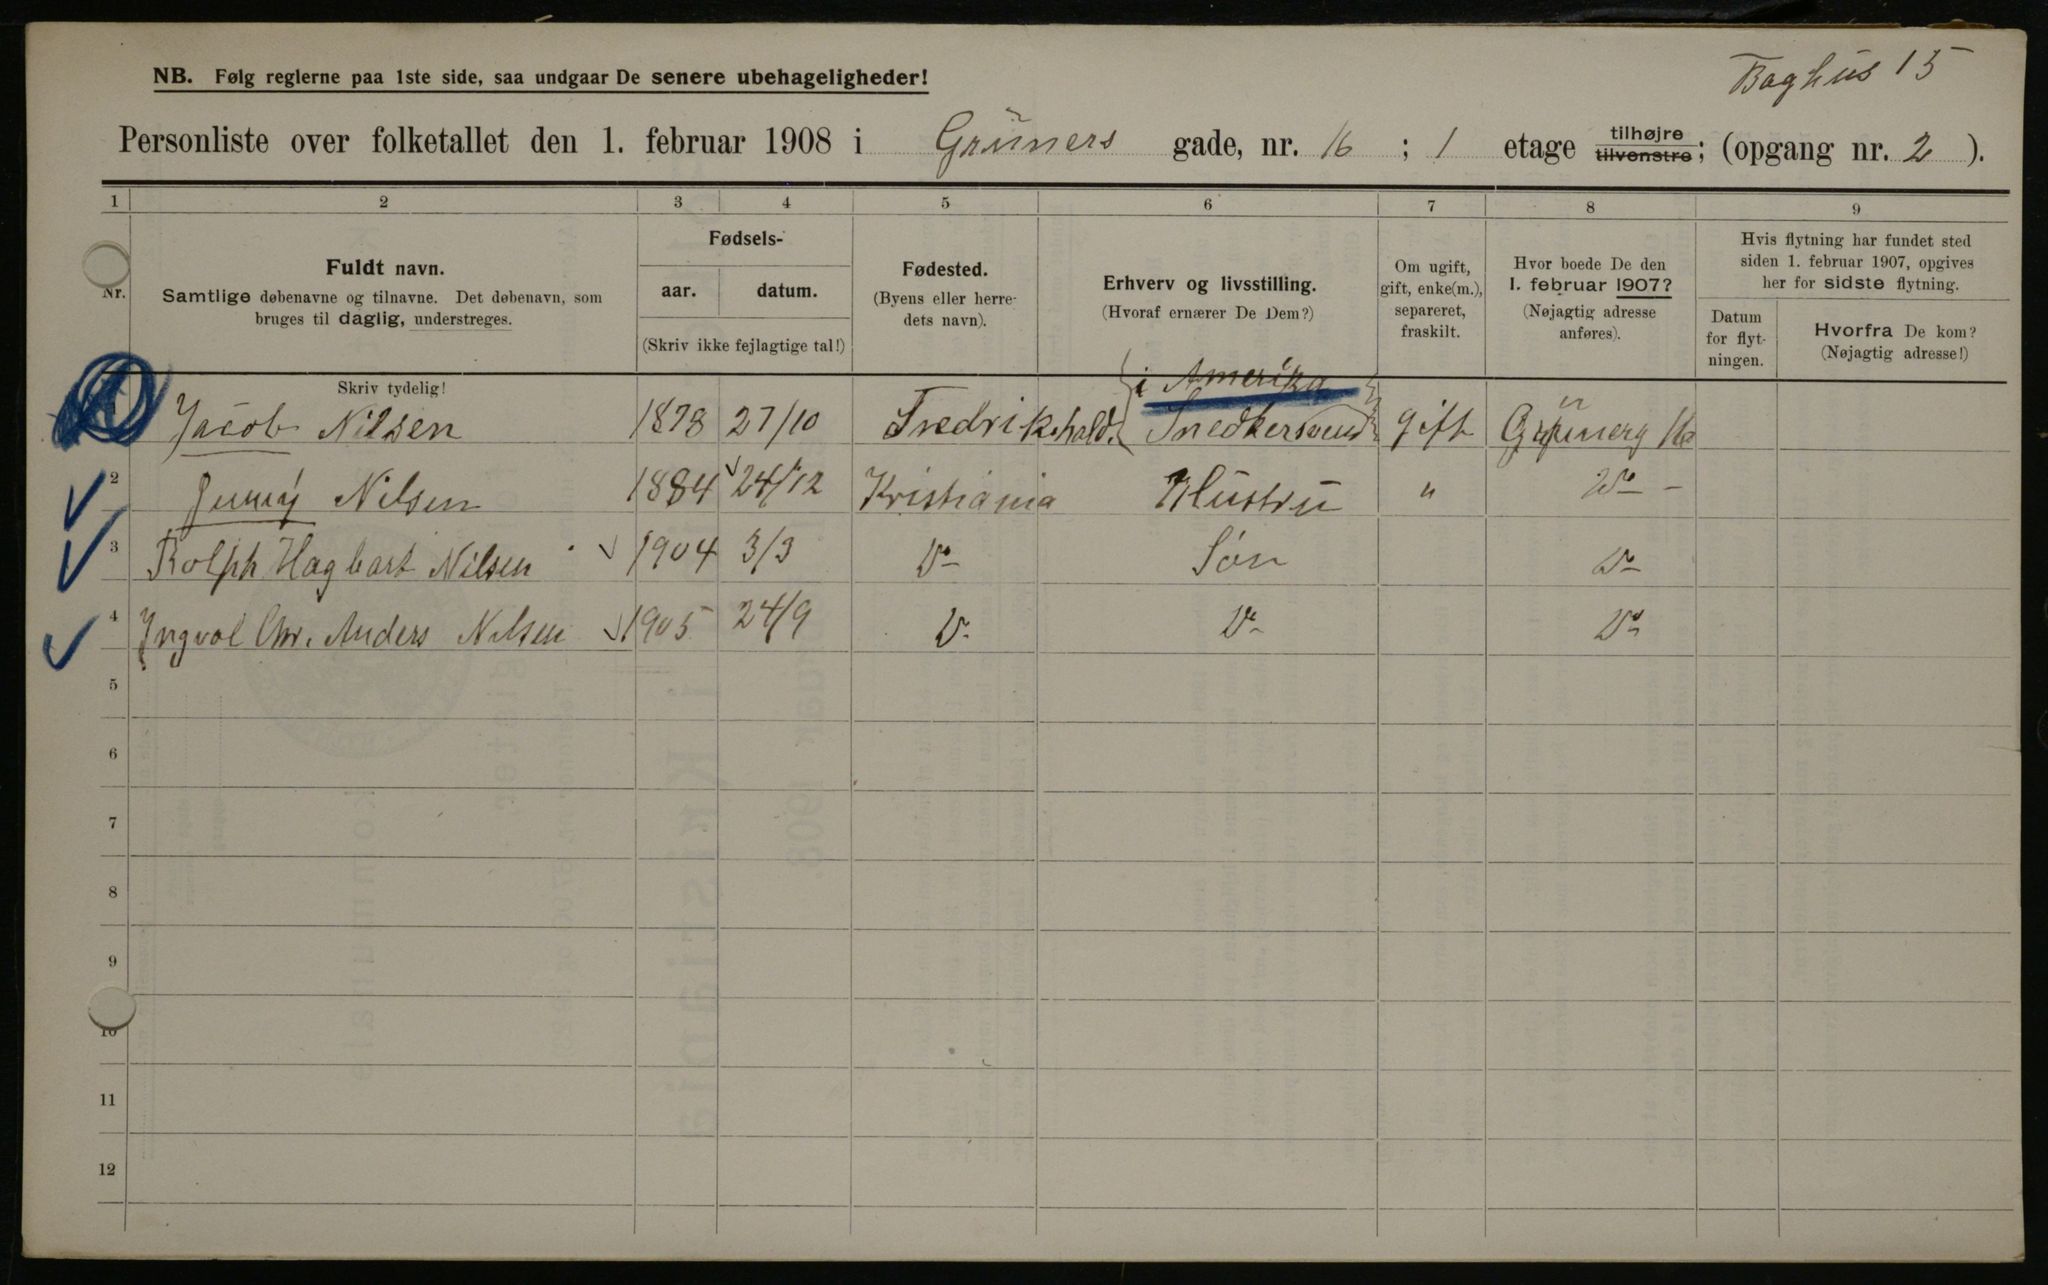 Baghus 15
NB. Følg reglerne paa 1ste side, saa undgaar De senere ubehageligheder!
Personliste over folketallet den 1. februar 1908 i Grüners gade, nr. 16 ; 1 etage tilhøjre tilvenstre; (opgang nr. 2 ).
1 2 3 4 5 6 7 8 9
Nr.
Fuldt navn.
Samtlige døbenavne og tilnavne. Det døbenavn, som
bruges til daglig, understreges.
Skriv tydelig!
Fødsels-
aar. datum.
(Skriv ikke fejlagtige tal!)
Fødested.
(Byens eller herre-
dets navn).
Erhverv og livsstilling.
(Hvoraf ernærer De Dem?)
Om ugift,
gift, enke(m.),
separeret,
fraskilt.
Hvor boede De den
1. februar 1907?
(Nøjagtig adresse
anføres).
Hvis flytning har fundet sted
siden 1. februar 1907, opgives
her for sidste flytning.
Datum
for flyt-
ningen.
Hvorfra De kom?
(Nøjagtig adresse!)
i Amerika
1 Jacob Nilsen 1878 27/10 Fredrikshald. Snedkersvend gift Grünerg 16
2 Jenny Nilsen 1884 24/12 Kristiania Hustru " Do -
3 Rolph Hagbart Nilsen 1904 3/3 Do Søn Do
4 Ingvol Chr. Anders Nilsen 1905 24/9 Do Do Do
5
6
7
8
9
10
11
12